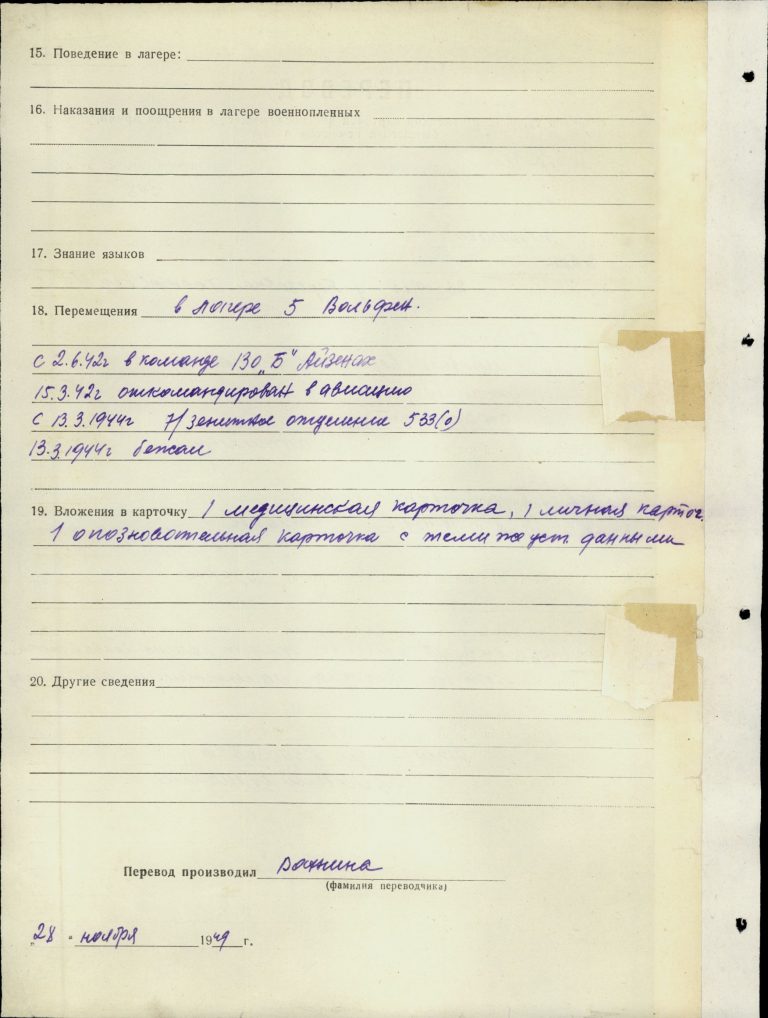 15. Поведение в лагере:
16. Наказания и поощрения в лагере военнопленных
17. Знание языков
18. Перемещения в лагере 5 Вольфен.
с 2.6.42г в команде 130 „Б" Айзенах
15.3.42г откомандирован в авиацию
с 13.3.1944г 7/ зенитное отделение 533(о)
13.3.1944г бежал
19. Вложения в карточку 1 медицинская карточка, 1 личная карточ.
1 опозновательная карточка с теми же уст. данными
20. Другие сведения
Перевод производил Вахнина
(фамилия переводчика)
„28 " ноября 1949 г.